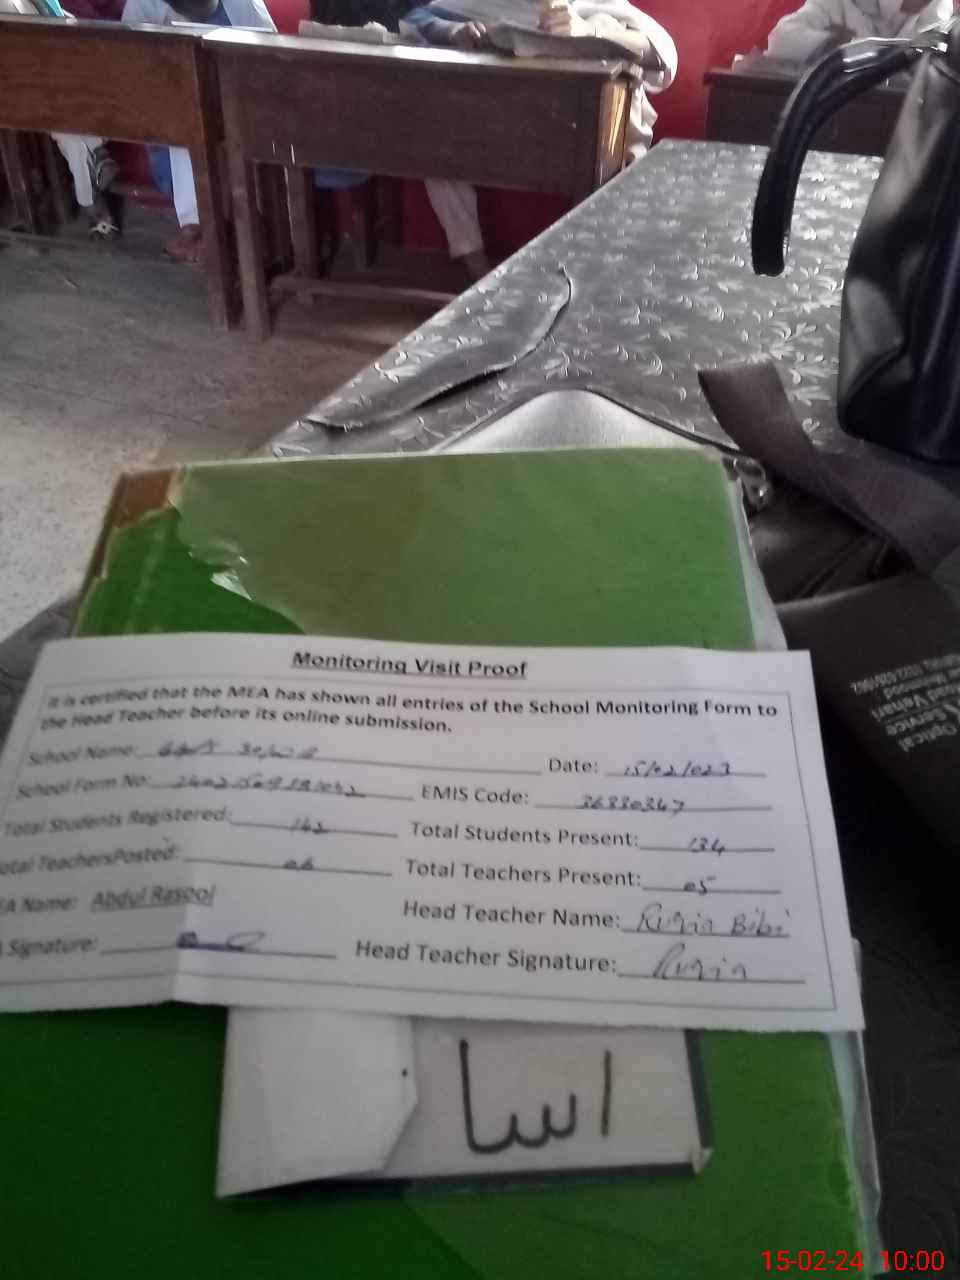 Monitoring Visit Proof
It is certified that the MEA has shown all entries of the School Monitoring Form to
the Head Teacher before its online submission.
School Name:
Date: 15/02/023
School Form No:
EMIS Code: 36330347
Total Students Registered: 142
Total Students Present: 134
Total TeachersPosted: 06
Total Teachers Present: 05
Name: Abdul Rasool
Head Teacher Name: Ruqia Bibi
Signature:
Head Teacher Signature: Ruqia
اسا
Optical
Service
Vehari
15-02-24 10:00